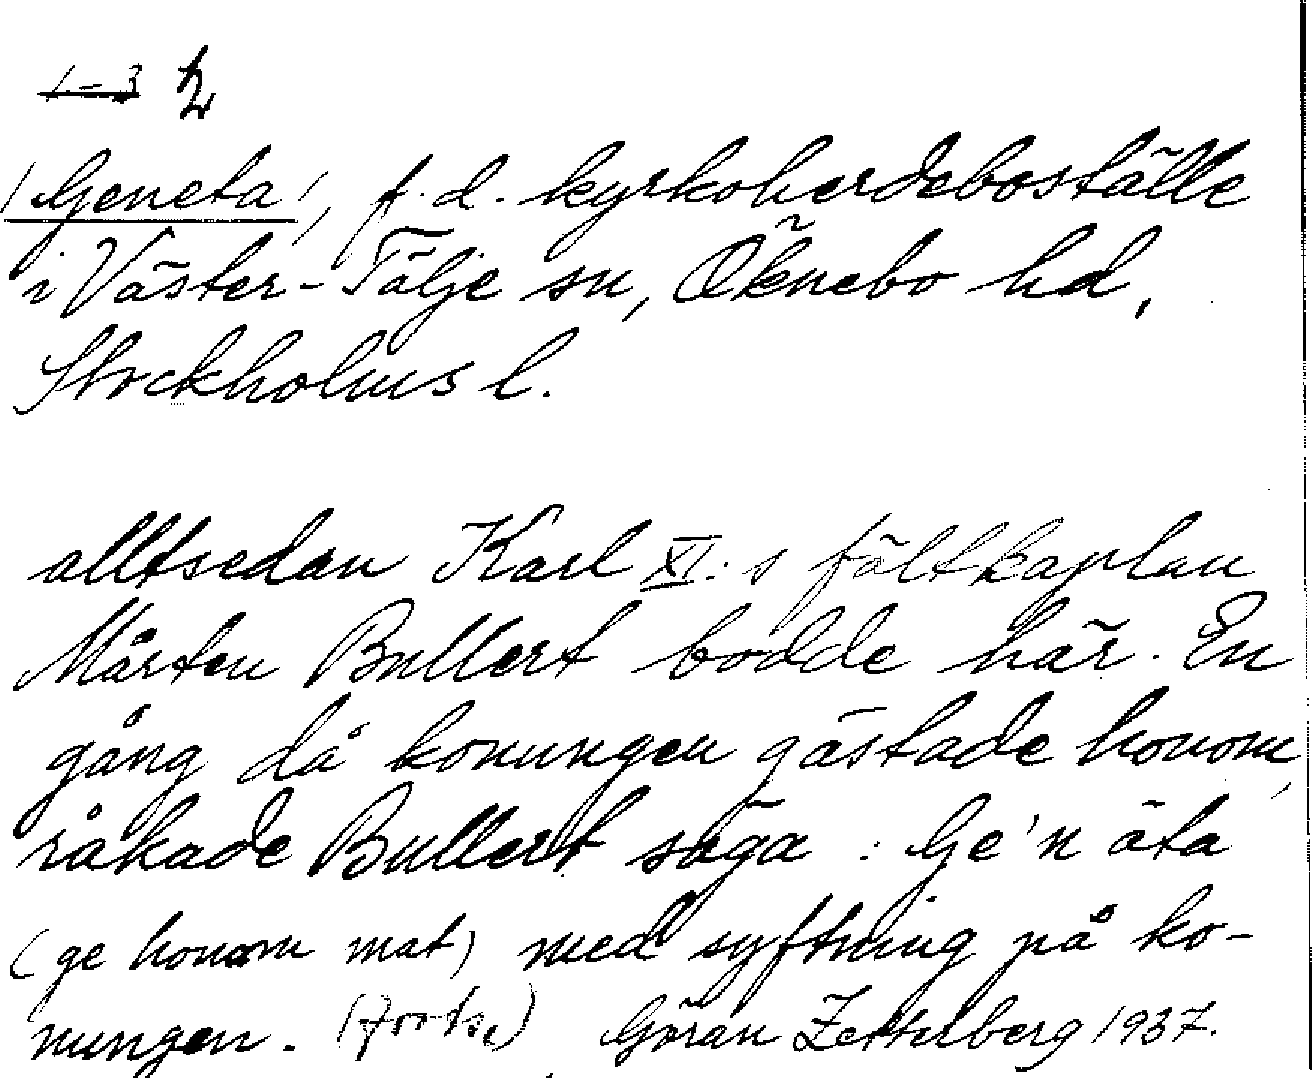 1-3 2
/Geneta/, f.d. kyrkoherdeboställe
i Väster-Tälje sn, Öknebo hd,
Stockholms l.
alltsedan Karl XI:s fältkaplan
Mårten Bullert bodde här. En
gång då konungen gästade honom,
råkade Bullert säga: Ge'n äta
(ge honom mat) med syftning på ko-
nungen. (forts.) Göran Zetterberg 1937.